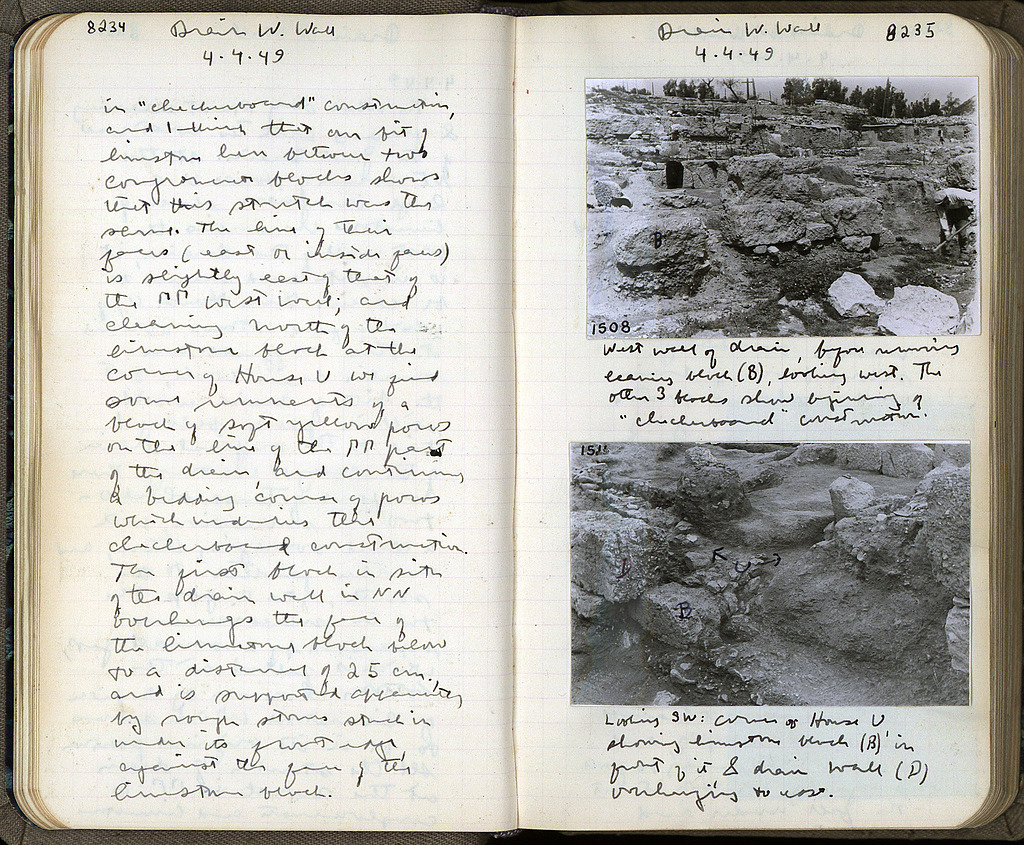 8234
Drain W. Wall
4.4.49
in "checkerboard" construction,
and I think that our bit of
limestone here between two
conglomerate blocks shows
that this stretch was the
same. The line of their
faces (east or inside faces)
is slightly east of that of
the ΠΠ west wall; and
cleaning north of the
limestone block at the
corner of House V we find
some remnants of a
block of soft yellow poros
on the line of the ΠΠ part
of the drain and continuing
a bedding course of poros
which underlies the
checkerboard construction.
The first block in situ
of the drain wall in NN
overhangs the face of
the limestone block below
to a distance of 25 cm.,
and is supported apparently
by rough stones stuck in
under its front edge,
against the face of the
limestone block.
8235
Drain W. Wall
4.4.49
B
1508
West wall of drain, before removing
leaning block (B), looking west. The
other 3 blocks show beginning of
"checkerboard" construction.
D
B
Looking SW: corner of House V
showing limestone block (B) in
front of it & drain wall (D)
overhanging to east.